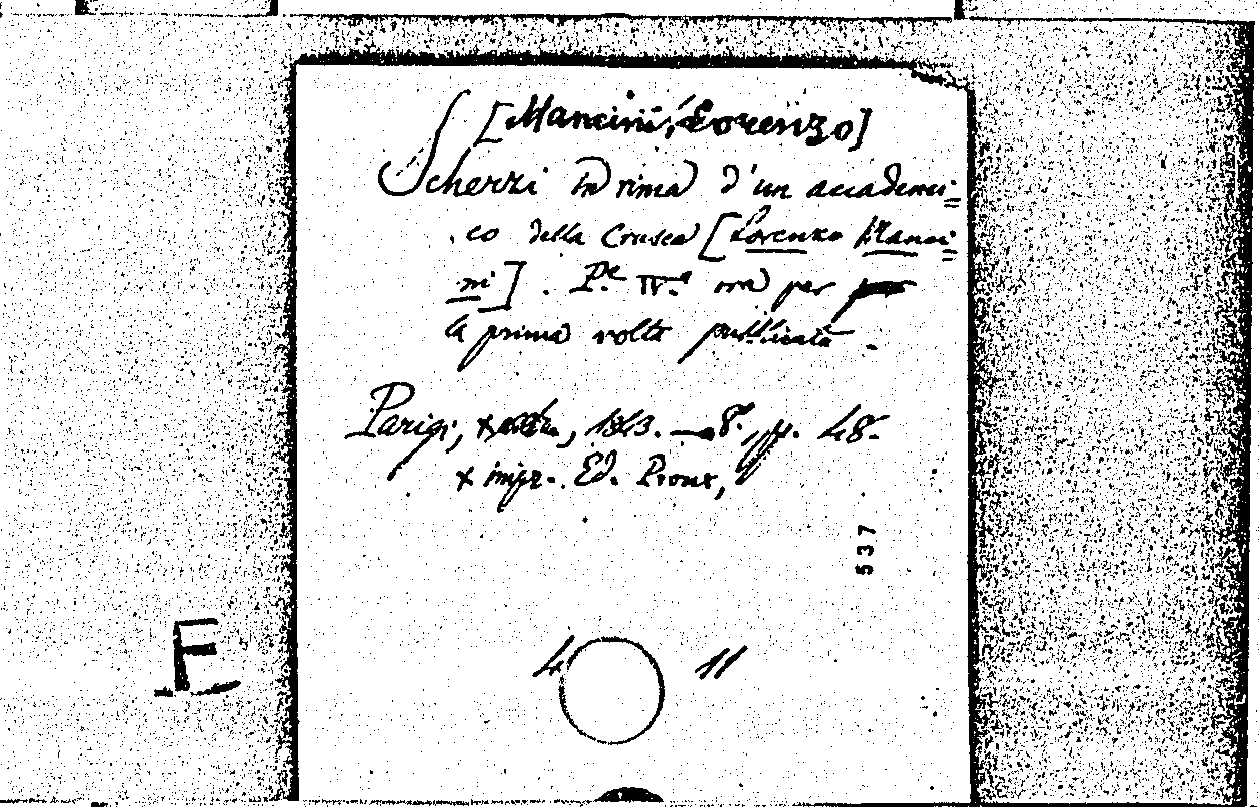 [Mancini, Lorenzo]
Scherzi in rima d'un accademi=
co della Crusca [Lorenzo Manci=
ni]. P.e IV.a ora per
la prima volta pubblicata.
Parigi, x, 1843. — 8.° pp. 48.
x impr. Ed. Proux,
537
4 11
E